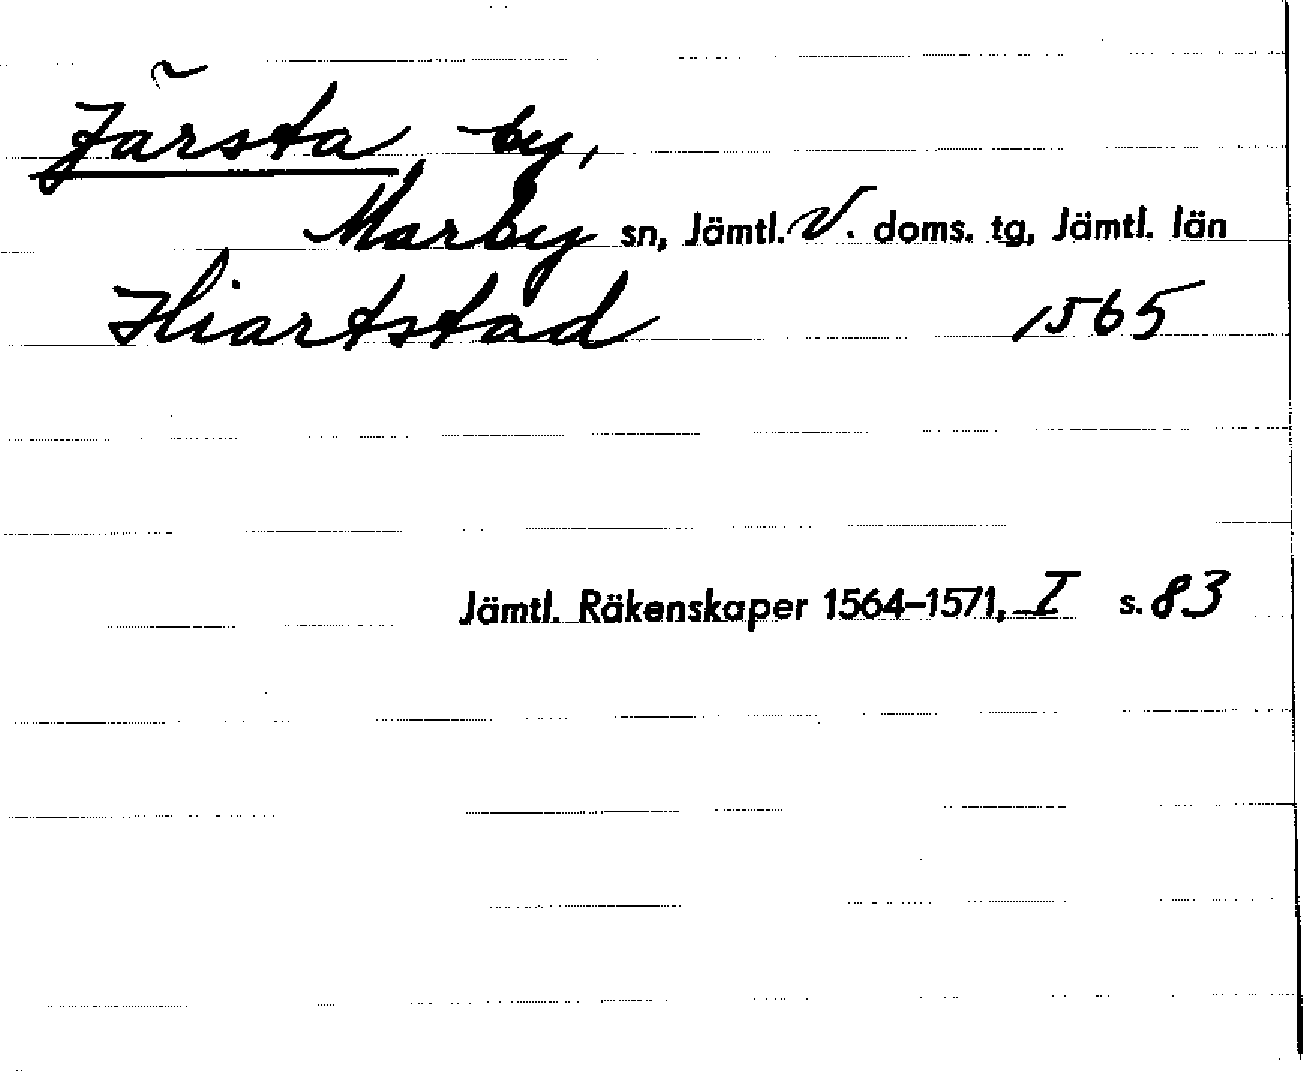 Järsta by,
Marby sn, Jämtl. V. doms. tg, Jämtl. län
Hiartstad 1565
Jämtl. Räkenskaper 1564–1571, I s. 83